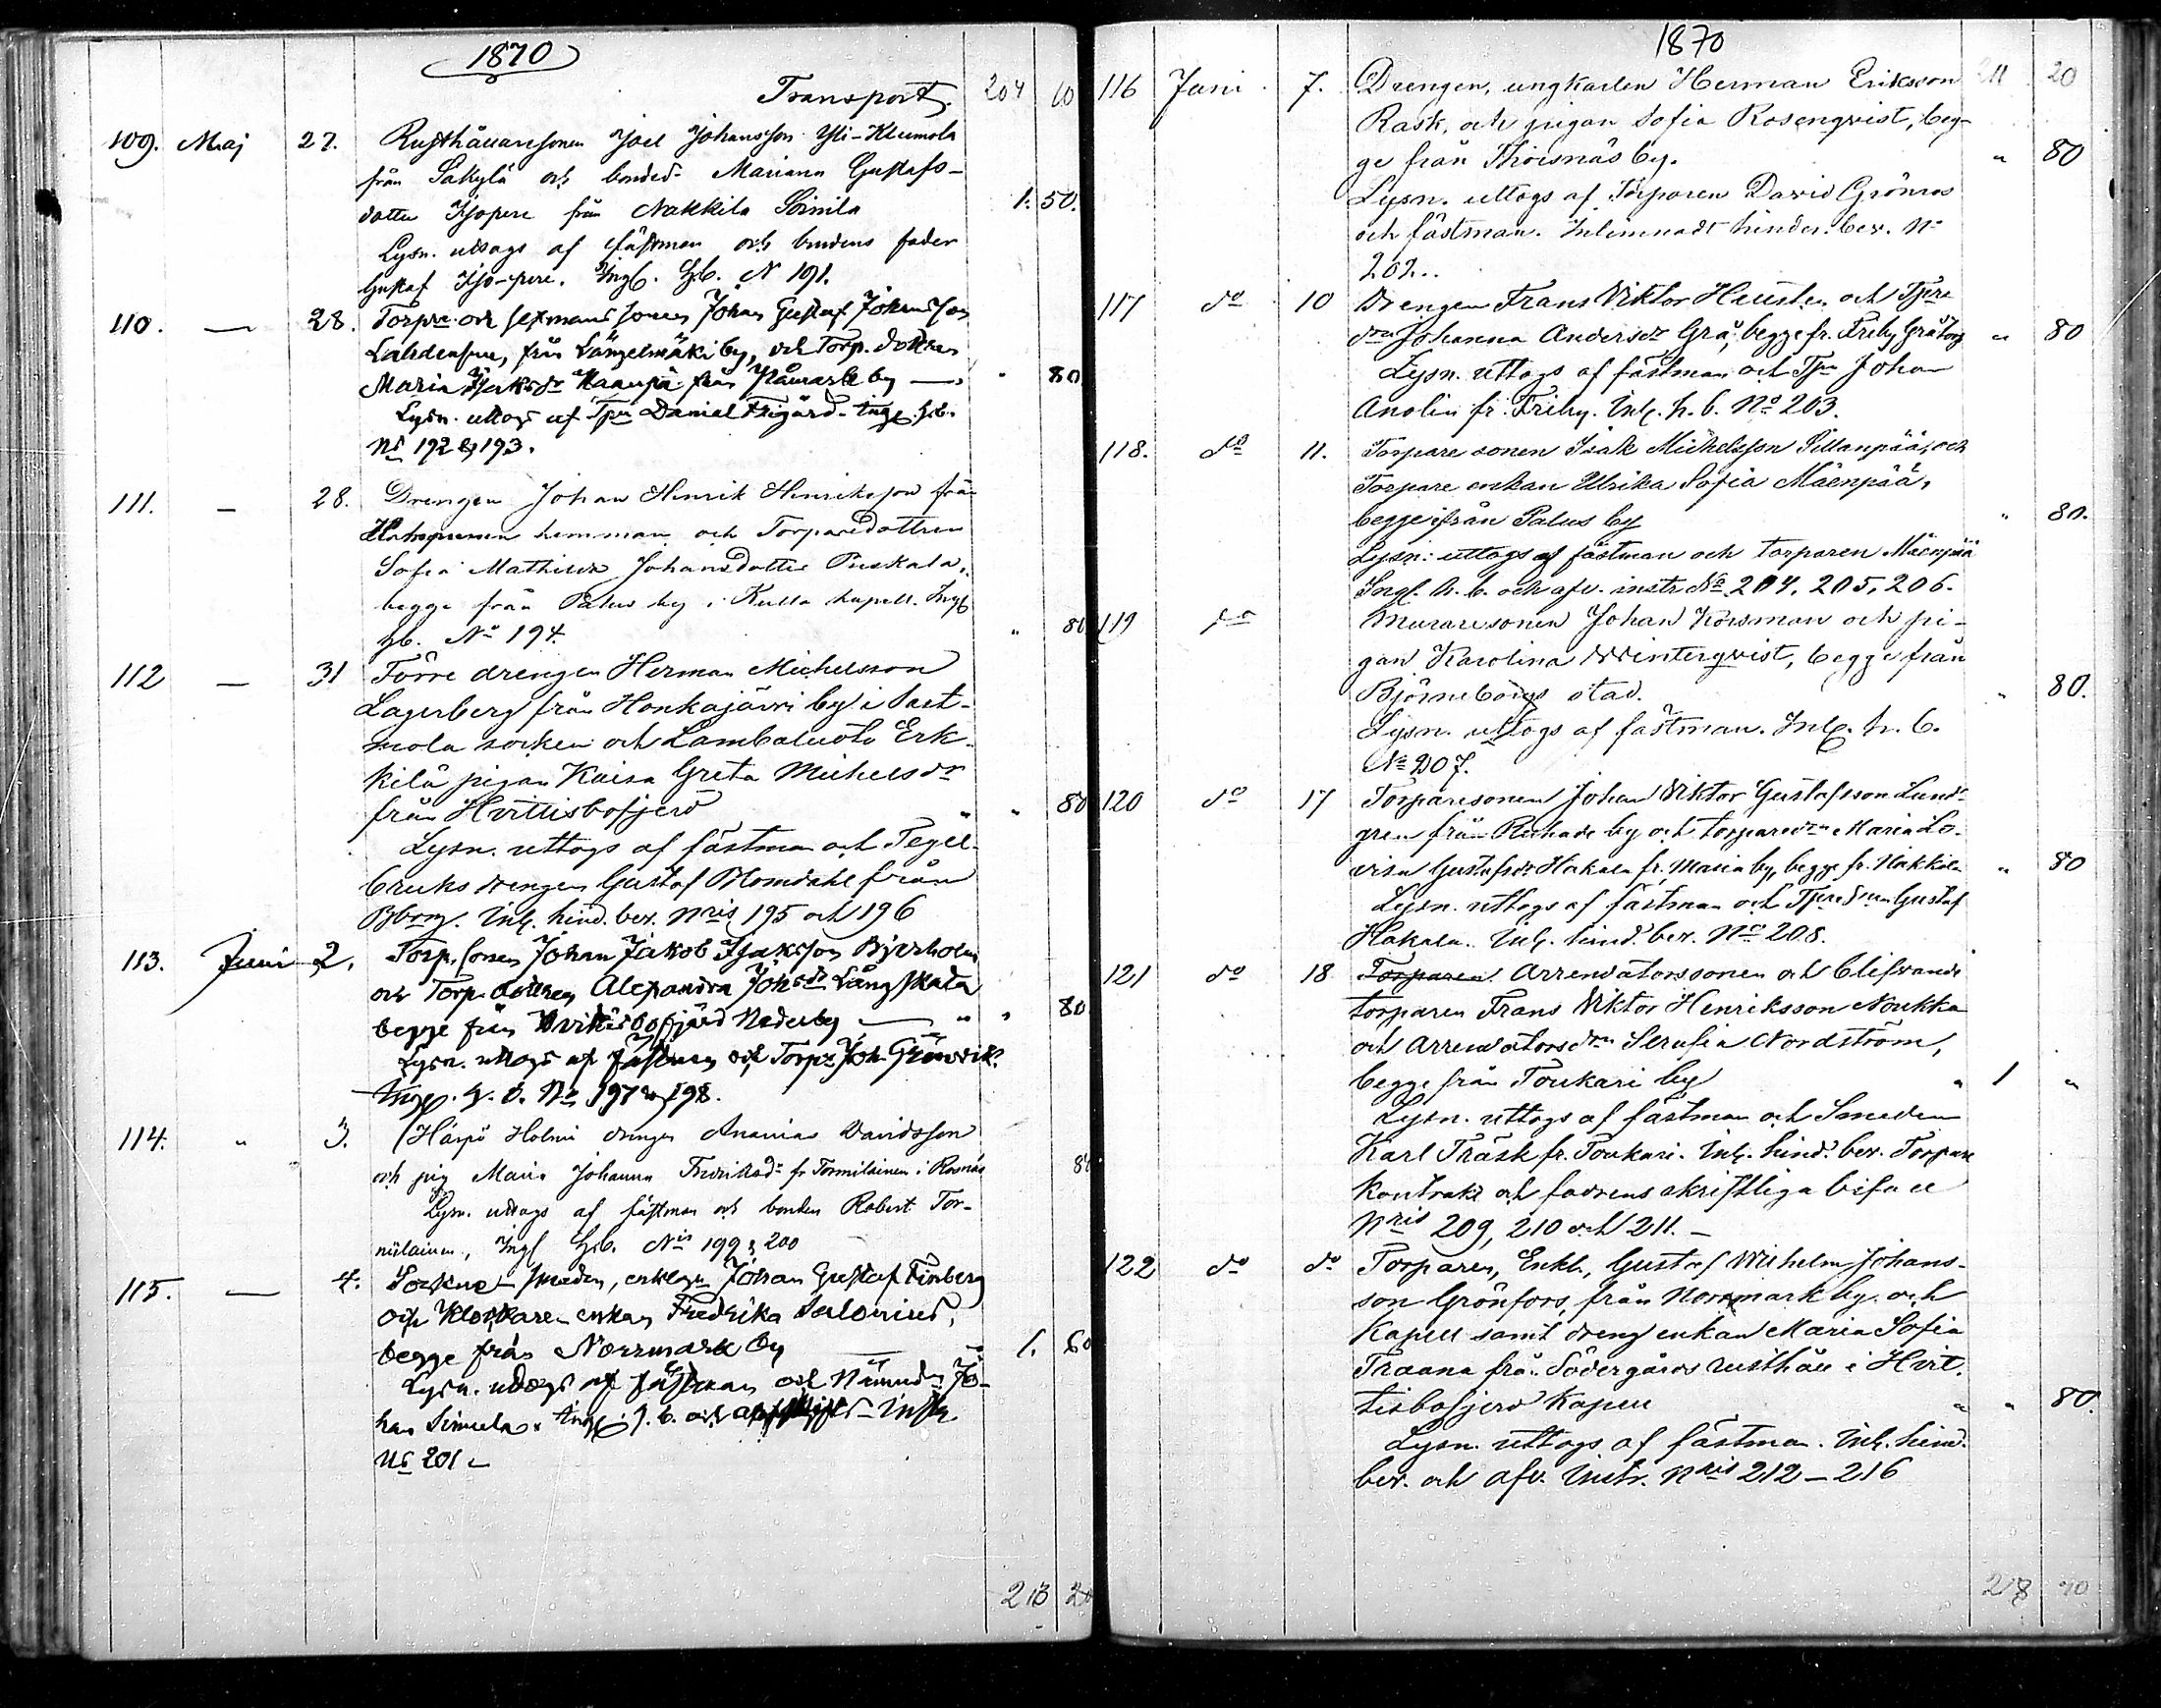 1870
Transport. 204 60
109. Maj 27. Rusthållaresonen Joel Johansson Yli-Kleemola
från Säkylä och bonded. Mariana Gustafs-
dotter Isopere från Nakkila Soinila 1. 50.
Lysn. uttogs af fästman och brudens fader
Gustaf Iso-pere. Ingf. hb. N 191.
110. — 28. Torpre och sexmans sonen Johan Gustaf Johansson
Lahdensuu, från Längelmäki by, och Torp. dottren
Maria Isaksdr Haanpä från Påmark by — " 80
Lysn. uttogs af Tpn Danial Frigård. Inge. h.b.
No 192 & 193.
111. — 28. Drengen Johan Henrik Henriksson från
hemman och Torparedottren
Sofia Mathilda Johansdotter Puskala,
begge från Palus by i Kulla kapell. Ingf
hb. No 194. " 80
112 — 31 Förre drengen Herman Michelsson
Lagerberg från Honkajärvi by i Sast-
mola socken och Lambaluoto Erk-
kilä pigan Kaisa Greta Michelsdr
från Hvittisbofjerd " " 80
Lysn. uttogs af fästman och Tegel-
bruks drengen Gustaf Blomdahl från
Bborg. Inl. hind. bev. Nris 195 och 196
113. Juni 2. Torp. sonen Johan Jakob Isaksson Bjerholm
och Torp. dottren Alexandra Johsdr Långskata
begge från Hvittisbofjärd Nederby — " " 80
Lysn. uttogs af fästman och Torpr Joh. Grönvik.
Inge. h. b. No 197 & 198.
114. " 3. Härpö Holmi drenge Ananias Davidsson
och pig Maria Johanna Fredriksdr fr Tornilainen i Rosnäs 80
Lysn. uttogs af fästman och bonden Robert Tor-
nilainen, Ingf h.b. Nis 199 & 200
115. — 4. Socknesmeden, enklingen Johan Gustaf Finberg
och Klockare enkan Fredrika Salonius,
begge från Norrmark by — " 1. 60
Lysn. uttogs af fästman och Nämndn Jo-
han Simula. Inge. h. b. och Instr.
No 201
213 20
1870
116 Juni 7. Drengen, ungkarlen Herman Eriksson 211 20
Rask, och pigan Sofia Rosenqvist, beg-
ge från Thorsnäs by. " 80
Lysn. uttogs af Torparen David Grönros
och fästman. Inlemnadt hinder. bev. No
202..
117 do 10 Drengen Frans Viktor Heusten och Tpre
drn Johanna Andersdr Grå, begge fr. Friby Grå torp " 80
Lysn. uttogs af fästman och Tpn Johan
Anolin fr. Friby. Inl. h. b. No 203.
118. do 11. Torpare sonen Isak Michelsson Sillanpää, och
Torpare enkan Ulrika Sofia Mäenpää,
begge ifrån Palus by " 80.
Lysn: uttogs af fästman och torparen Mäenpää
Ingf. h. b. och afv. instr No 204, 205, 206.
119 do Muraresonen Johan Korsman och pi-
gan Karolina Winterqvist, begge från
Björneborgs stad. " 80.
Lysn. uttogs af fästman. Inl. h. b.
No 207.
120 do 17 Torparesonen Johan Viktor Gustafsson Lund-
gren från Ruhade by och torparedrn Maria Lo-
visa Gustafsdr Hakala fr. Masia by, begge fr. Nakkila " 80
Lysn. uttogs af fästman och Tpresonen Gustaf
Hakala. Inl. hind. bev. No 208.
121 do 18 Torparen Arrendatorssonen och blifvande
torparen Frans Viktor Henriksson Noukka
och Arrendatorsdrn Serafia Nordström,
begge från Toukari by " 1 "
Lysn. uttogs af fästman och Smeden
Karl Träsk fr. Toukari. Inl. hind. bev. Torpare
Kontrakt och fadrens skriftliga bifall
Nris 209, 210 och 211. —
122 do do Torparen, Enkl., Gustaf Wilhelm Johans-
son Grönfors, från Norrmark by och
Kapell samt dreng enkan Maria Sofia
Traana från Södergårds rusthåll i Hvit-
tisbofjerd Kapell " " 80.
Lysn. uttogs af fästman. Inl. hind.
bev. och afv. Instr. Nris 212 — 216
218 20